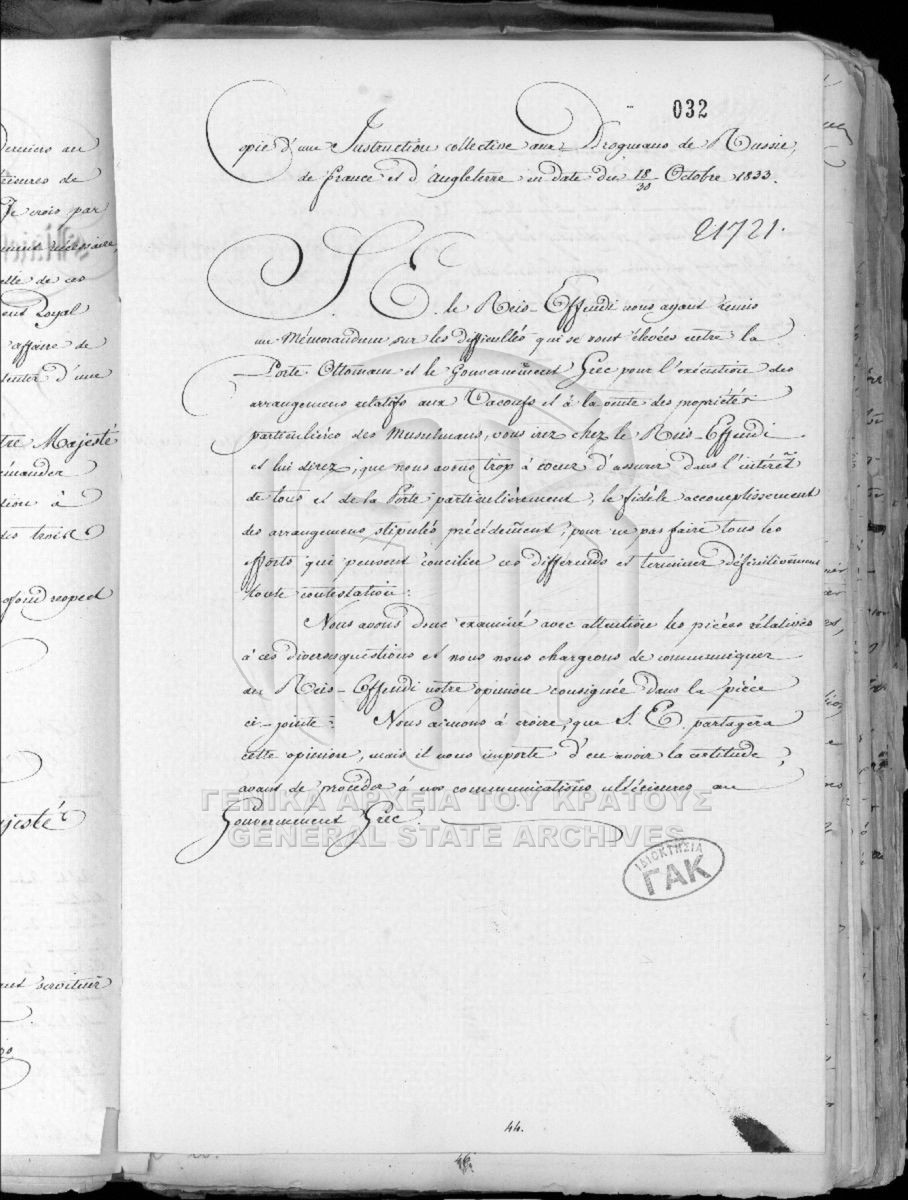 032
Copie d'une Instruction collective aux Drogmans de Russie,
de france et d'Angleterre en date du 18/30 Octobre 1833.
21721.
S. E. le Reis-Effendi nous ayant remis
un Mémorandum sur les difficultés qui se sont élevées entre la
Porte Ottomane et le Gouvernement Grec pour l'exécution des
arrangemens relatifs aux Vacoufs et à la vente des propriétés
particulières des Musulmans, vous irez chez le Reis-Effendi
et lui direz, que nous avons trop à coeur d'assurer dans l'intérêt
de tous et de la Porte particulièrement, le fidèle accomplissement
des arrangemens stipulés précédemment, pour ne pas faire tous les
efforts qui peuvent concilier ces differends et terminer définitivement
toute contestation.
Nous avons donc examiné avec attention les pièces rélatives
à ces diverses questions et nous nous chargeons de communiquer
au Reis-Effendi notre opinion consignée dans la pièce
ci-jointe. Nous aimons à croire, que S. E. partagera
cette opinion, mais il nous importe d'en avoir la certitude,
avant de procéder à nos communications ultérieures au
Gouvernement Grec
ΓΕΝΙΚΑ ΑΡΧΕΙΑ ΤΟΥ ΚΡΑΤΟΥΣ
GENERAL STATE ARCHIVES
ΙΔΙΟΚΤΗΣΙΑ
ΓΑΚ
44.
Derniers au
Je crois par
elle de ces
Loyal
affaire de
d'une
Majesté
à
des trois
respect
serviteur